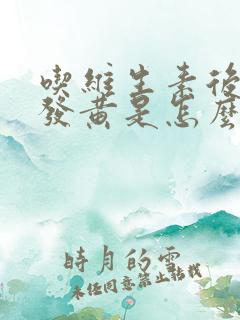 喫維生素後
發黃是怎麼
時月的雲
未經同意禁止轉載